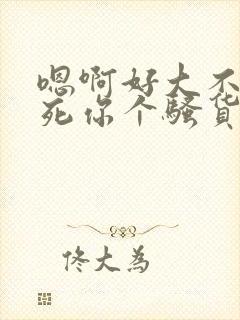 嗯啊好大不
死你个骚货
佟大为